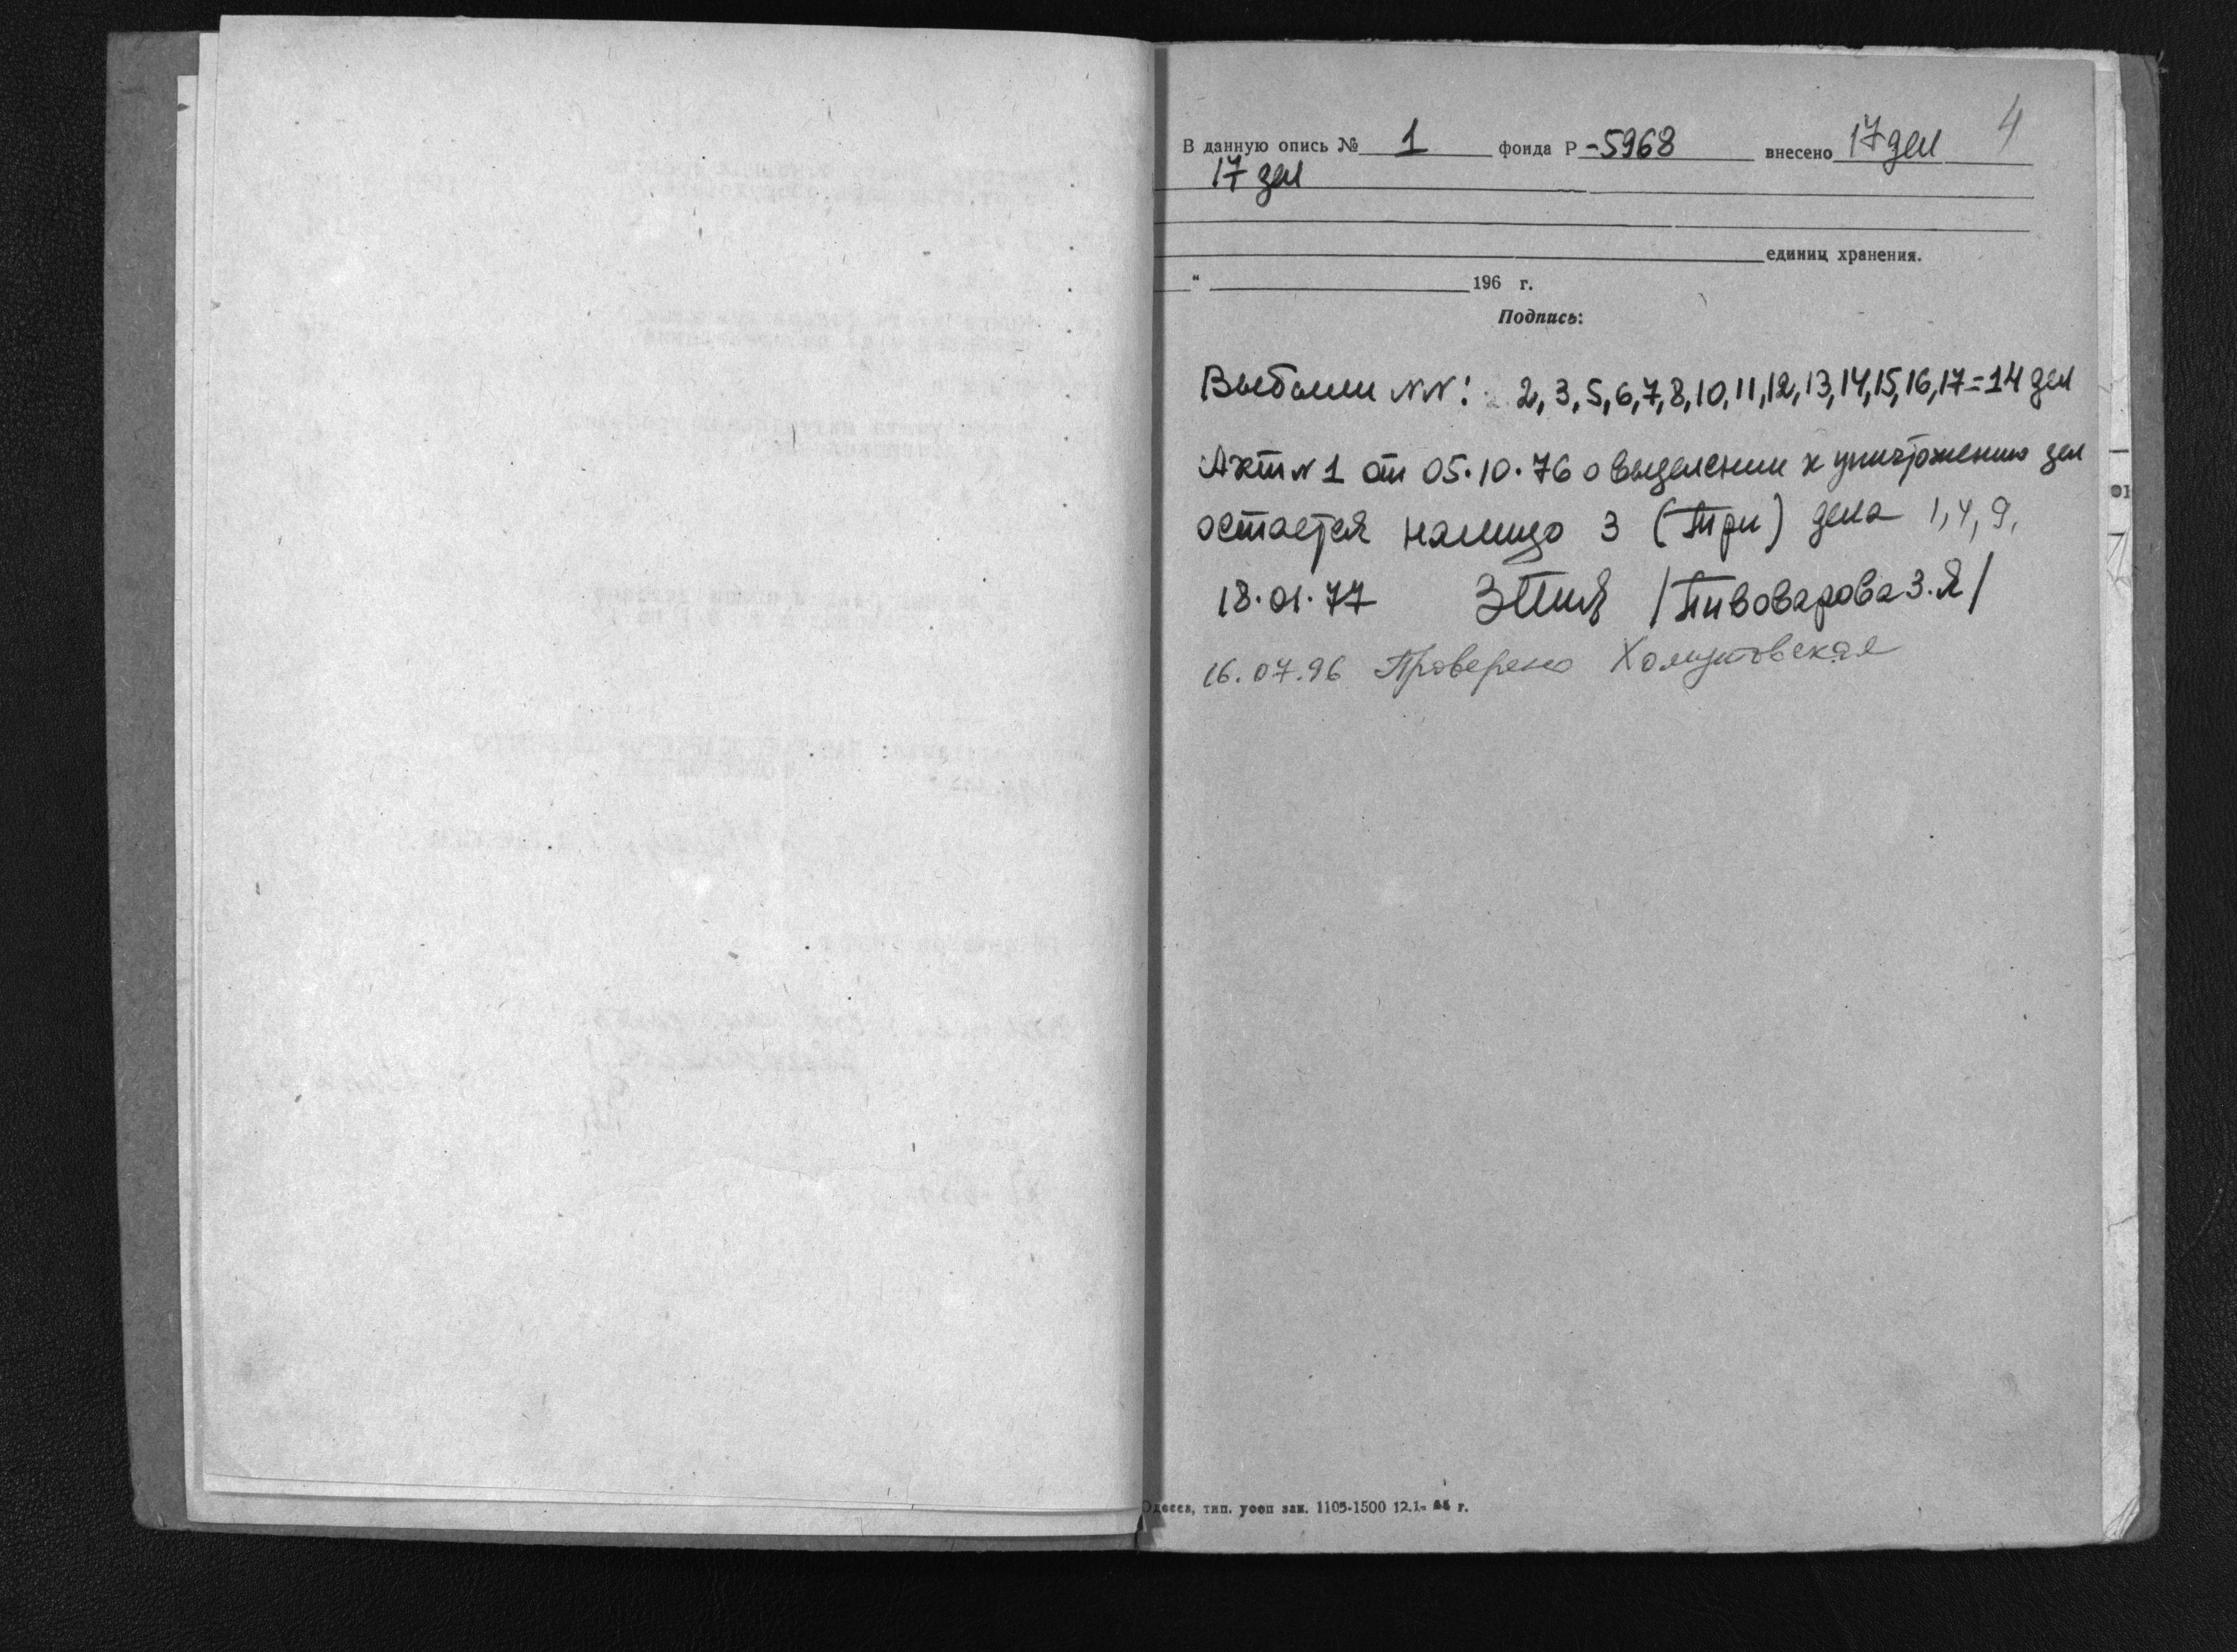 4
В данную опись № 1 фонда Р -5968 внесено 17 дел
17 дел
единиц хранения.
" 196 г.
Подпись:
Выбыли NN: 2, 3, 5, 6, 7, 8, 10, 11, 12, 13, 14, 15, 16, 17 = 14 дел
Акт N 1 от 05.10.76 о выделении к уничтожению дел
остается налицо 3 (три) дела 1, 4, 9.
18.01.77 /Пивоварова З.Я/
16.07.96 Проверено Хомутовская
Одесса, тип. зак. 1105-1500 12.1- г.